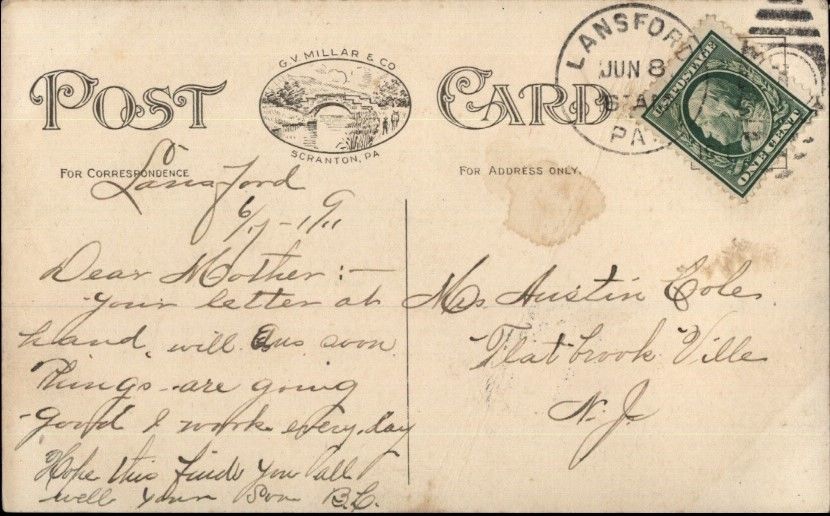 G.V. MILLAR & CO
POST CARD
SCRANTON, PA
LANSFORD
JUN 8
AM
PA.
U.S. POSTAGE
ONE CENT
FOR CORRESPONDENCE
FOR ADDRESS ONLY.
Lansford
6/7-1911
Dear Mother:-
your letter at
hand, will Ans soon
Things are going
good I work every day
Hope this finds you all
well your Son B.C.
Mrs Austin Cole
Flatbrook Ville
N.J.